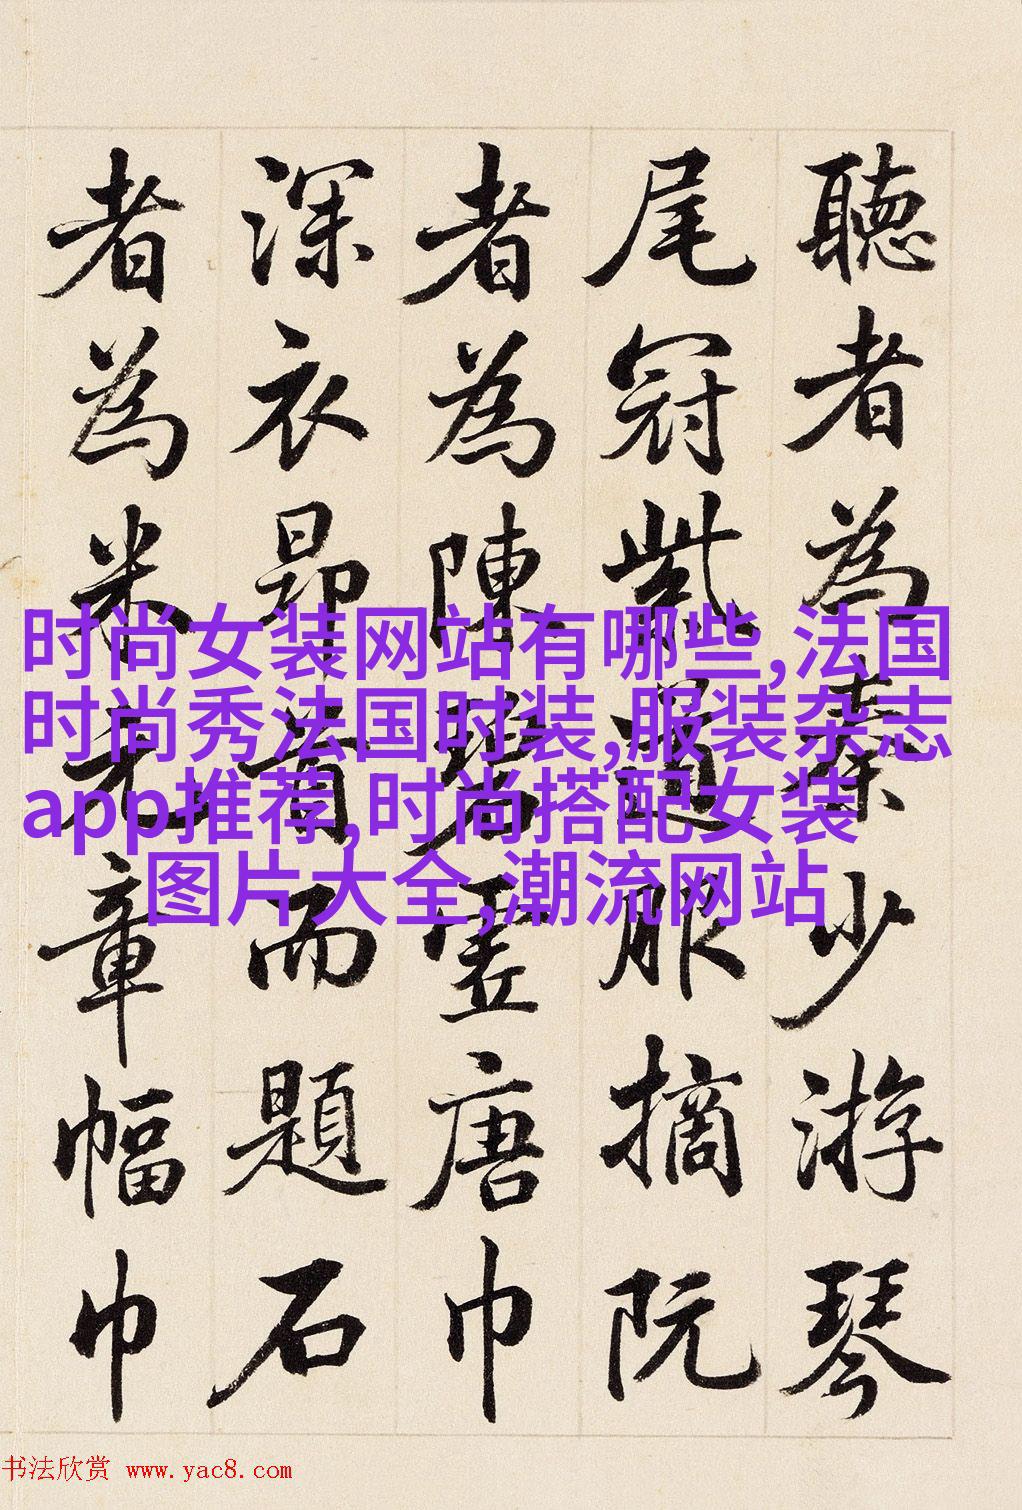 聽者為秦少游琴
尾冠紫道服摘阮
者為陳碧虛唐巾
深衣昂首而題石
者為米元章幅巾
时尚女装网站有哪些,法国
时尚秀法国时装,服装杂志
app推荐,时尚搭配女装
图片大全,潮流网站
书法欣赏 www.yac8.com